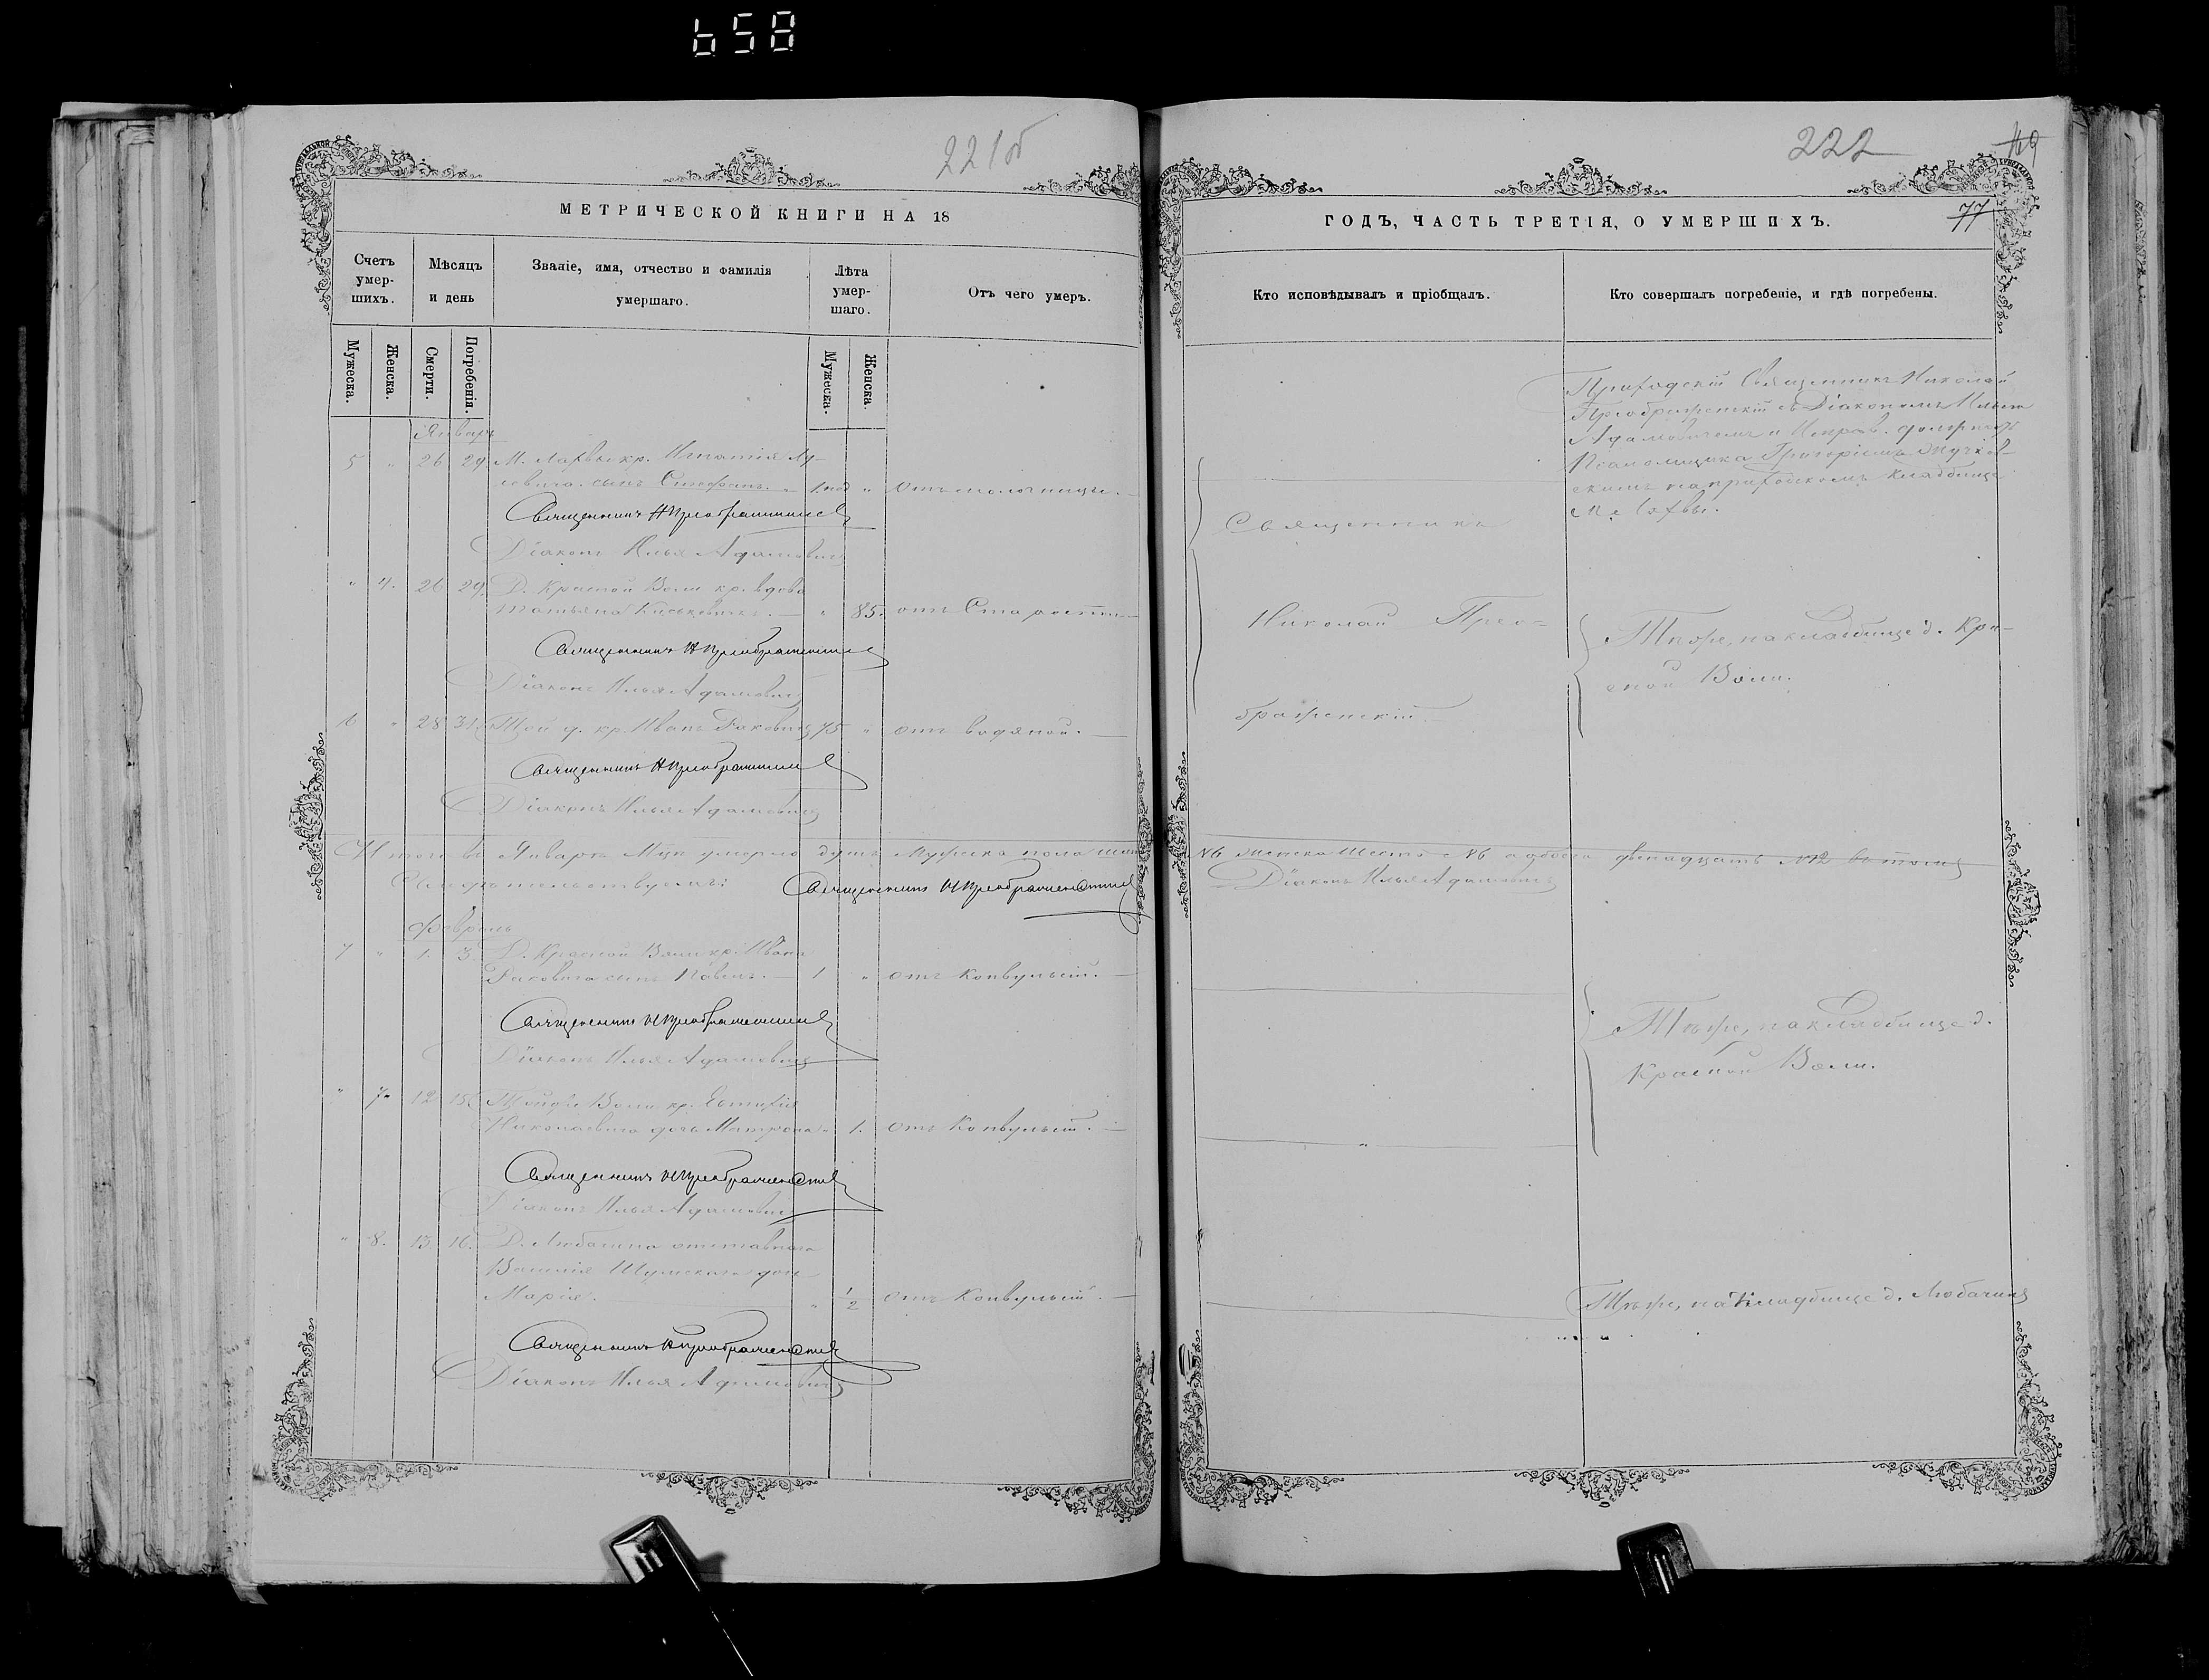 658
221об
МЕТРИЧЕСКОЙ КНИГИ НА 18
Счетъ умер-шихъ.
Мѣсяцъ и день
Званіе, имя, отчество и фамилія умершаго.
Лѣта умер-шаго.
Отъ чего умеръ.
Мужеска.
Женска.
Смерти.
Погребенія.
Мужеска.
Женска.
Январь
5 " 26 29 М. Лахвы кр. Игнатія
сынъ Стефанъ. 1 "
Священникъ Н Преображенскій
Діаконъ Илья Адамовичъ
" 4. 26 29 Д. Красной Воли кр. вдова
Татьяна " 85. отъ Старости
Священникъ Н Преображенскій
Діаконъ Илья Адамовичъ
6 " 28 31 Той д. кр. Иванъ Раковичъ 75 " отъ водяной.
Священникъ Н Преображенскій
Діаконъ Илья Адамовичъ
Итого въ Январѣ Мцѣ умерло душъ Мужеска пола шесть
Свидѣтельствуемъ: Священникъ Н Преображенскій
Февраль
7 " 1. 3. Д. Красной Воли кр. Ивана
Раковича сынъ Павелъ. 1 " отъ Конвульсій.
Священникъ Н Преображенскій
Діаконъ Илья Адамовичъ
" 7. 12 15 Той же Воли кр. Евтихія
Николаевича дочь Матрона " 1. отъ Конвульсій.
Священникъ Н Преображенскій
Діаконъ Илья Адамовичъ
" 8. 13 16. Д. Любачина отставного
Василія Шумскаго дочь
Марія. " 1/2 отъ Конвульсій.
Священникъ Н Преображенскій
Діаконъ Илья Адамовичъ
222
77
ГОДЪ, ЧАСТЬ ТРЕТІЯ, О УМЕРШИХЪ.
Кто исповѣдывалъ и пріобщалъ.
Кто совершалъ погребеніе, и гдѣ погребены.
Приходскій Священникъ Николай
Преображенскій съ Діакономъ Ильею
Адамовичемъ и Исправ. должность
Псаломщика Григоріемъ
на приходскомъ кладбищѣ
м. Лахвы.
Священникъ
Николай Прео-
браженскій.
Тѣ же, на кладбищѣ д. Кра-
сной Воли.
№6 женска шесть №6 а обоего двенадцать №12 въ томъ
Діаконъ Илья Адамовичъ
Тѣ же, на кладбищѣ д.
Красной Воли.
"
Тѣ же, на кладбищѣ д. Любачина